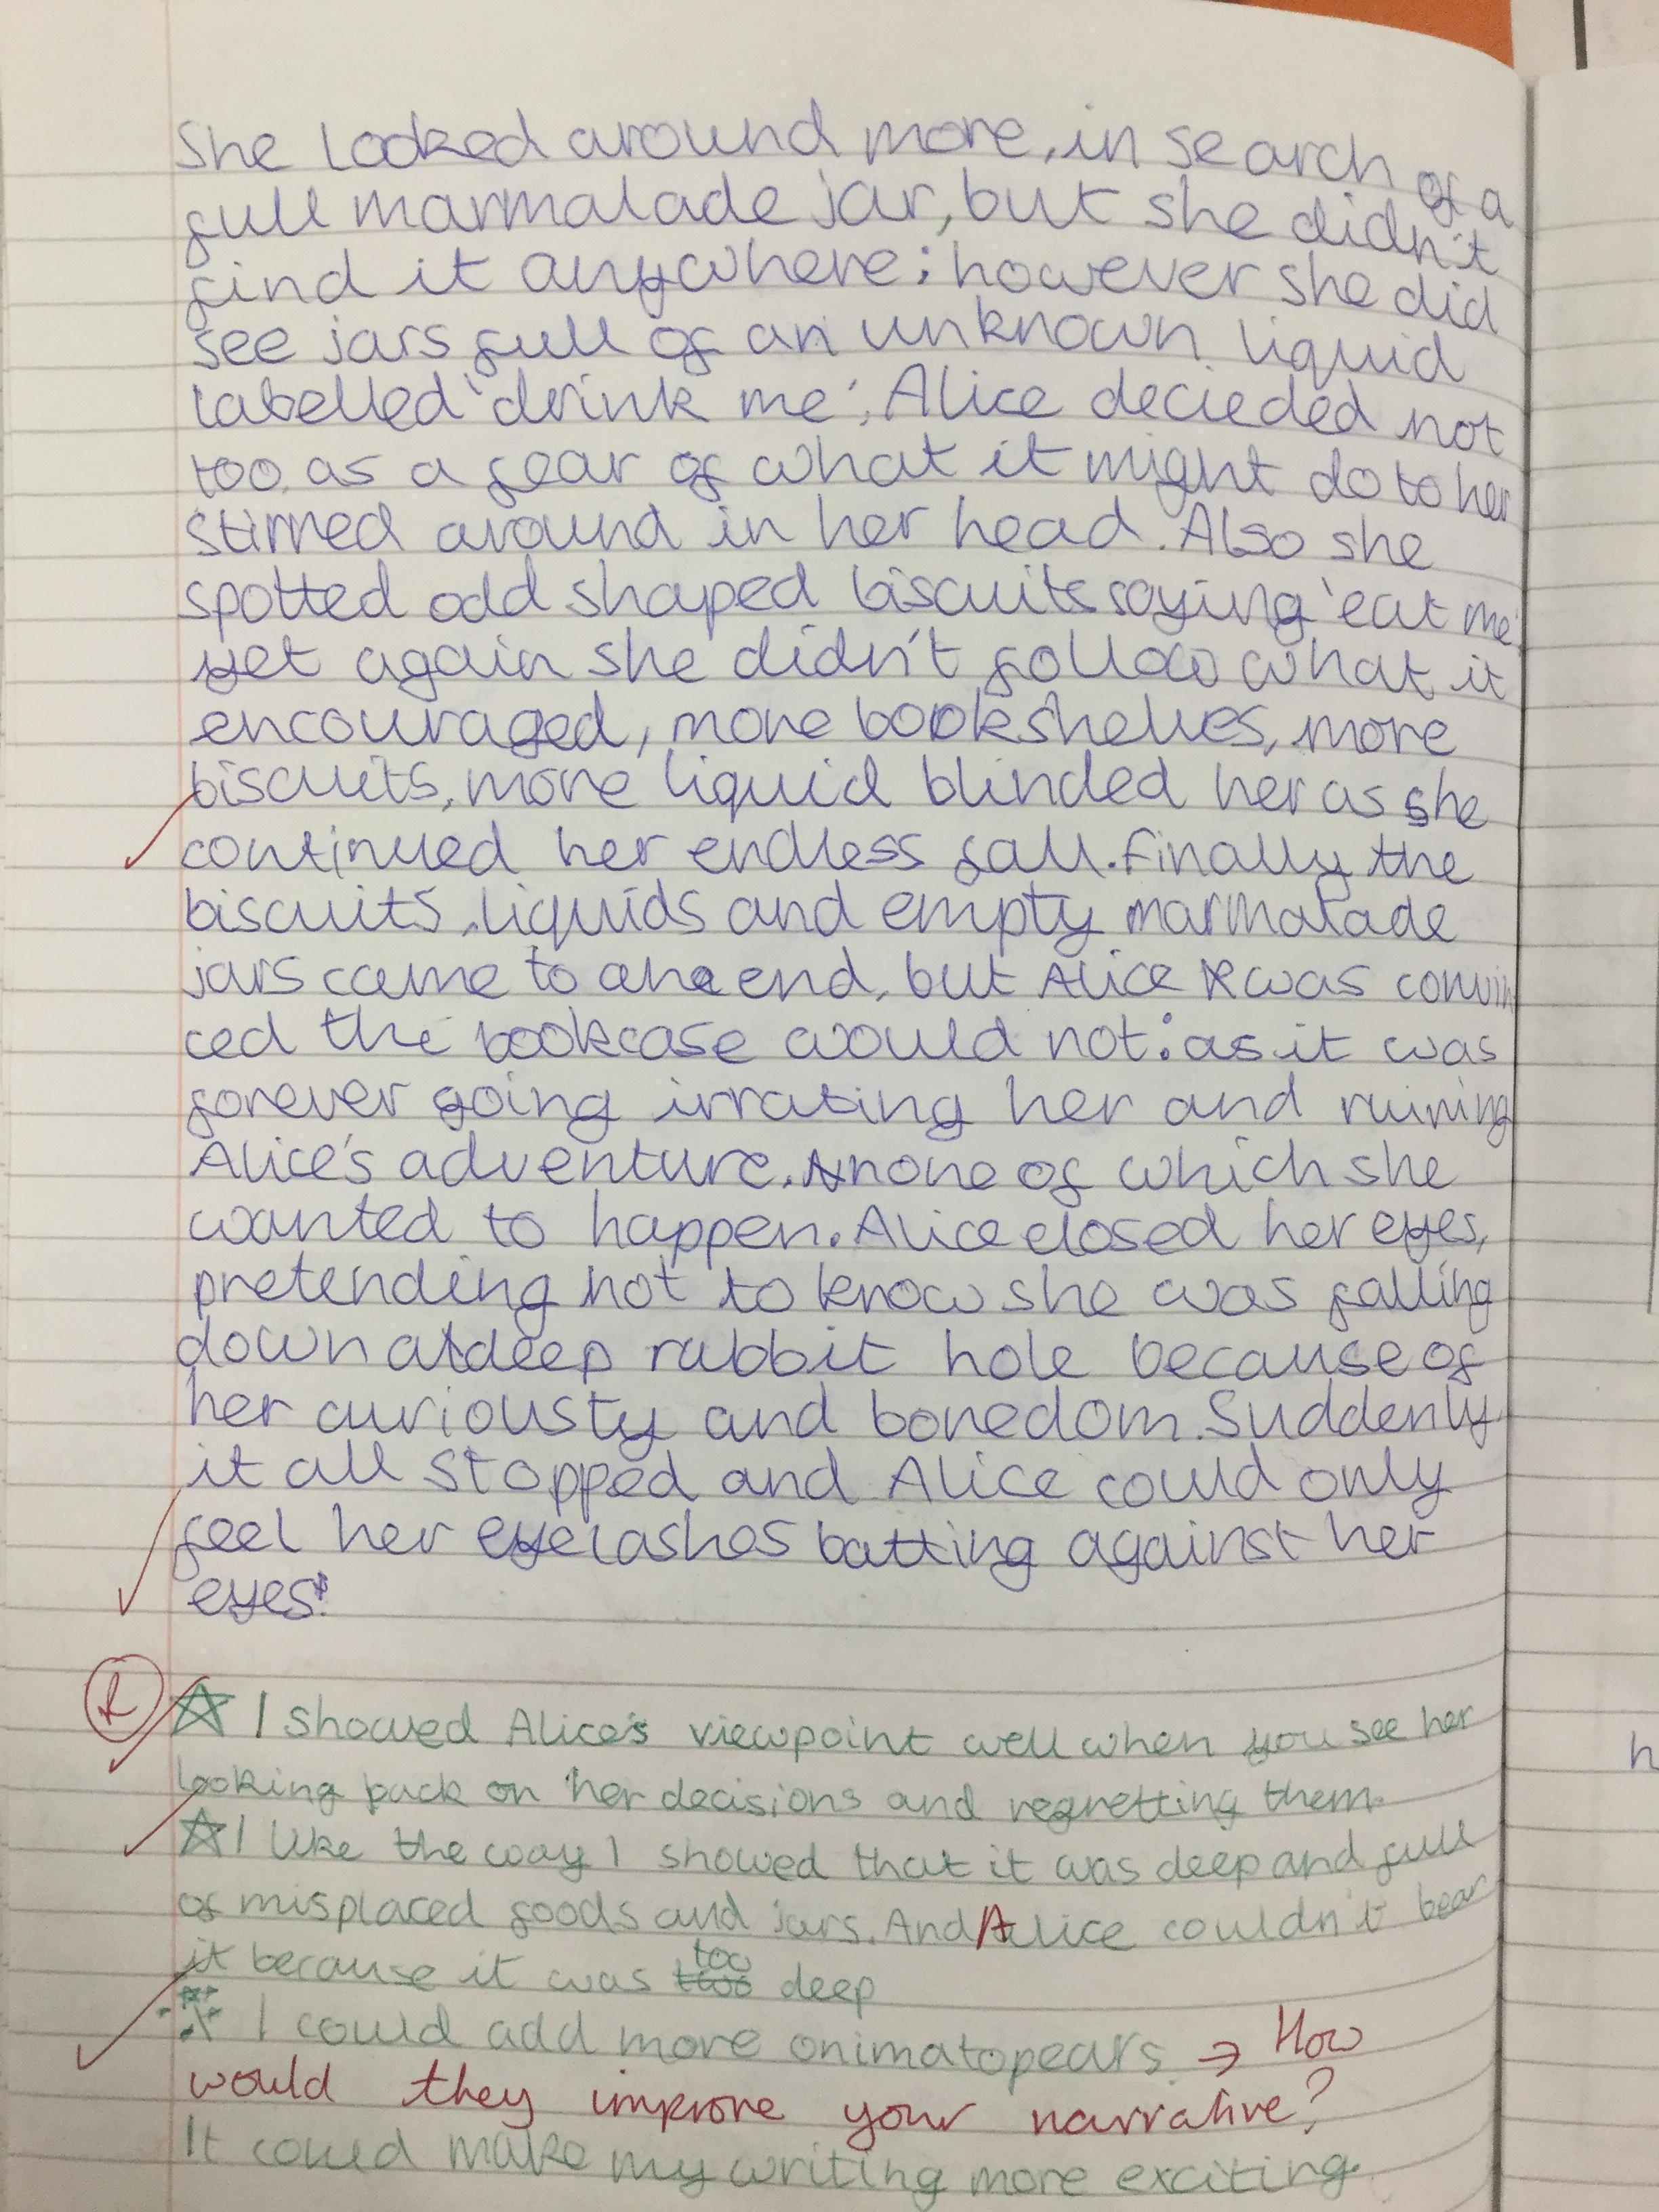 She looked around more, in search of a
full marmalade jar, but she didn't
find it anywhere; however she did
see jars full of an unknown liquid
labelled 'drink me'; Alice decieded not
too, as a fear of what it might do to her
stirred around in her head. Also she
spotted odd shaped biscuits saying 'eat me'
yet again she didn't follow what it
encouraged, more bookshelves, more
biscuits, more liquid blinded her as she
continued her endless fall. Finally the
biscuits, liquids and empty marmalade
jars came to an end, but Alice was convin
ced the bookcase would not: as it was
forever going irrating her and ruining
Alice's adventure. none of which she
wanted to happen. Alice closed her eyes,
pretending not to know she was falling
down a deep rabbit hole because of
her curiousty and boredom. Suddenly
it all stopped and Alice could only
feel her eyelashes batting against her
eyes!
R ☆ I showed Alice's viewpoint well when you see her
looking back on her decisions and regretting them.
☆ I like the way I showed that it was deep and full
of misplaced goods and jars. And Alice couldn't bear
it because it was too deep
I could add more onimatopears. → How
would they improve your narrative?
It could make my writing more exciting.
h